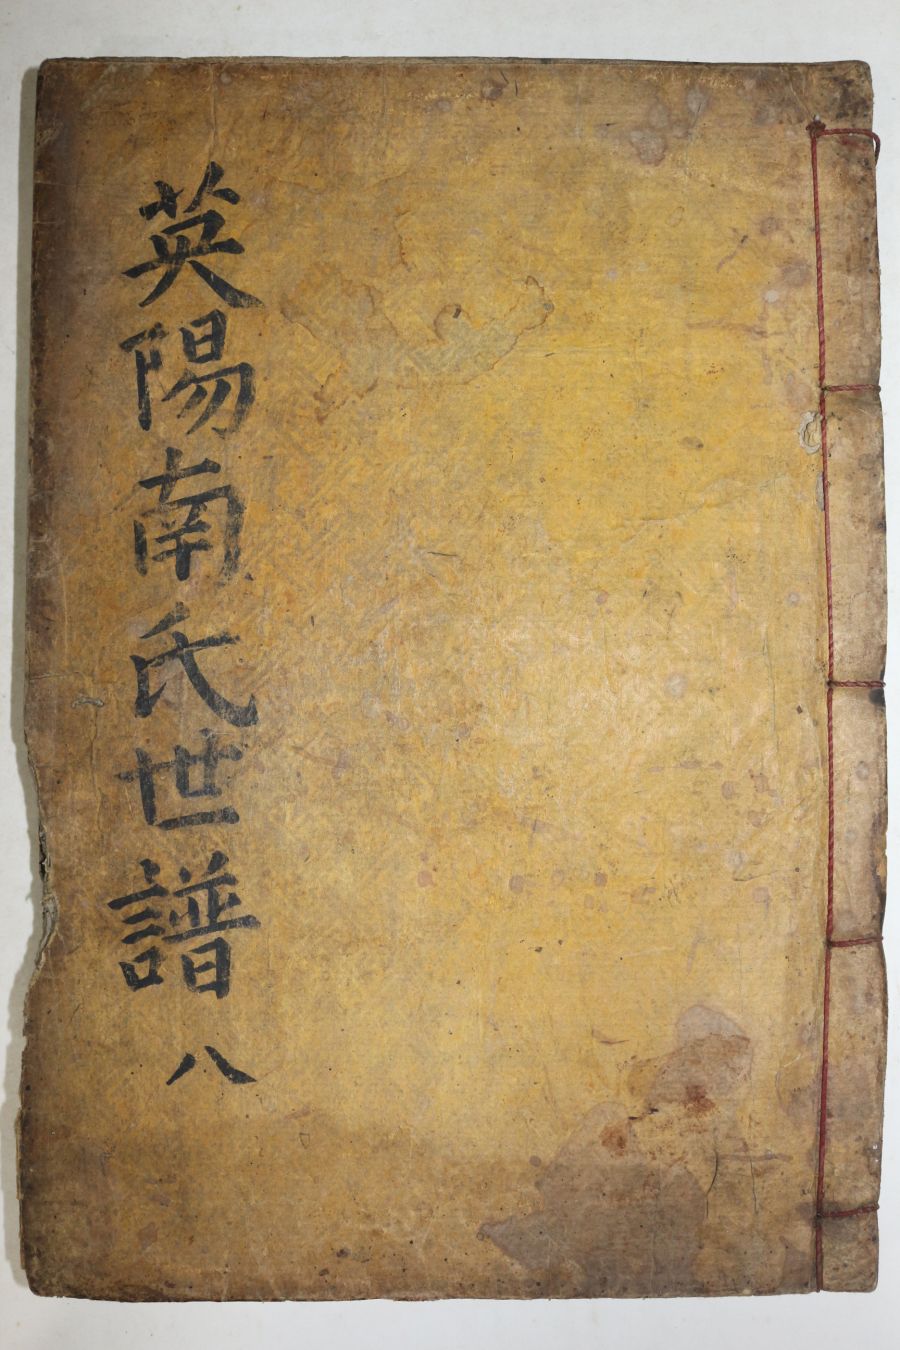 英陽南氏世譜 八